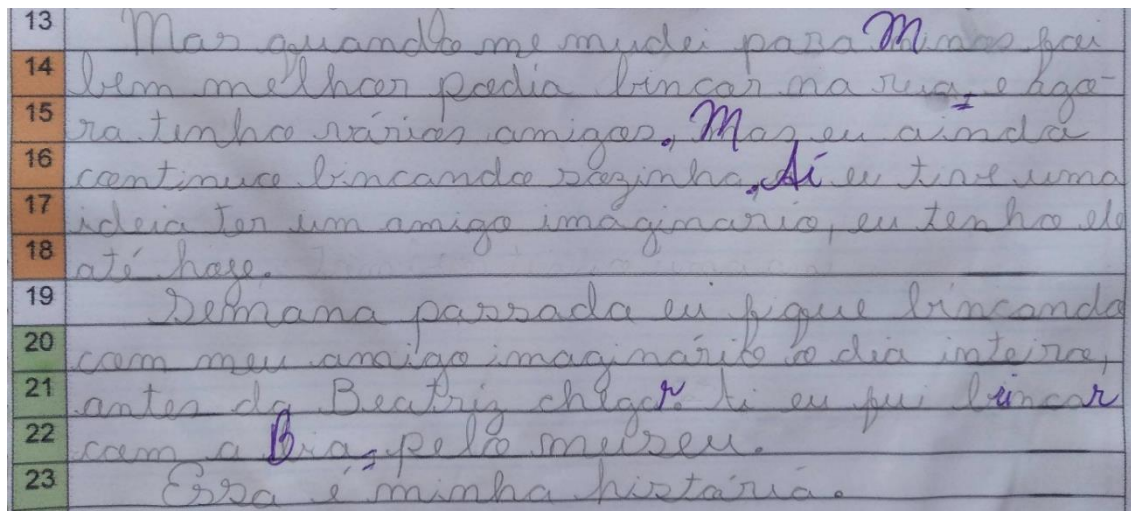 13 Mas quando me mudei para Minas foi
14 bem melhor podia brincar na rua, e ago-
15 ra tenho vários amigos. Mas eu ainda
16 continuo brincando sozinho. Aí eu tive uma
17 ideia ter um amigo imaginario, eu tenho ele
18 até hoje.
19 Semana passada eu fique brincando
20 com meu amigo imaginário o dia inteiro,
21 antes da Beatriz chegar. Ai eu fui brincar
22 com a Bia, pelo museu.
23 Essa é minha história.